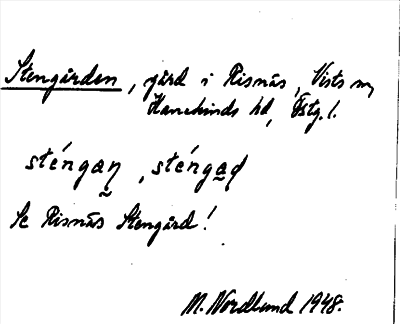 Stengården, gård i Risnäs, Vists sn,
Hanekinds hd, Östg. l.
sténgaṇ, sténgaḍ
Se Risnäs Stengård!
M. Nordlund 1948.